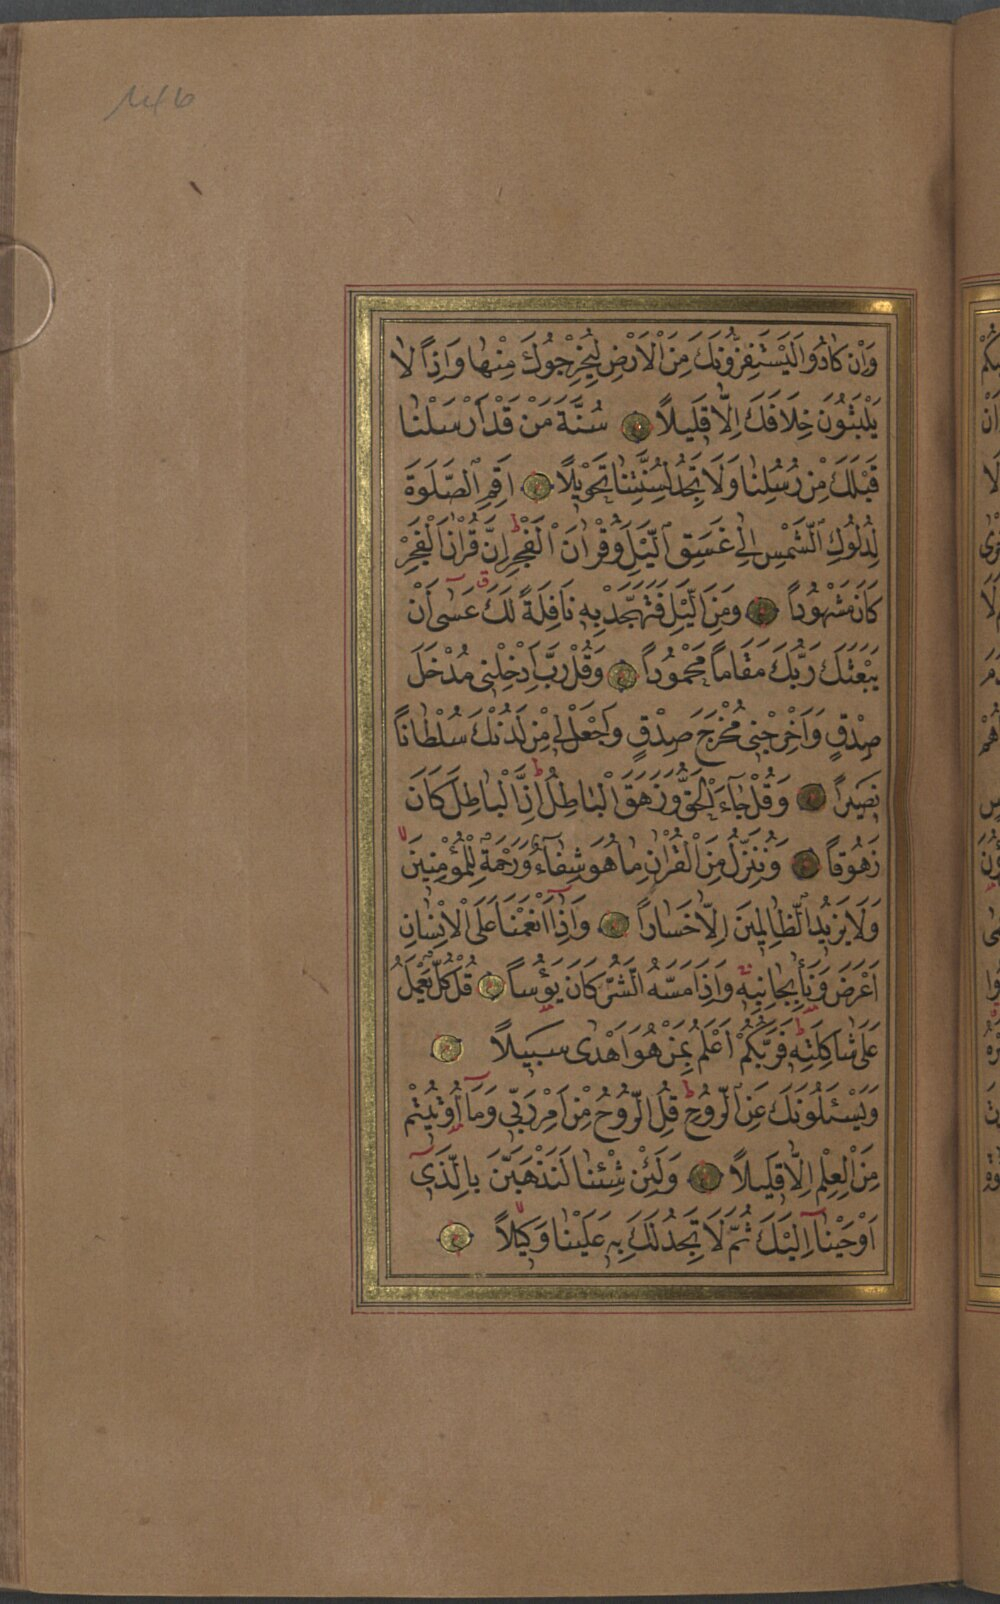 وَاِنْ كَادُوا لَيَسْتَفِزُّونَكَ مِنَ الْاَرْضِ لِيُخْرِجُوكَ مِنْهَا وَاِذًا لَا
يَلْبَثُونَ خِلَافَكَ اِلَّا قَلِيلًا سُنَّةَ مَنْ قَدْ اَرْسَلْنَا
قَبْلَكَ مِنْ رُسُلِنَا وَلَا تَجِدُ لِسُنَّتِنَا تَحْوِيلًا اَقِمِ الصَّلٰوةَ
لِدُلُوكِ الشَّمْسِ اِلٰى غَسَقِ الَّيْلِ وَقُرْاٰنَ الْفَجْرِ ط اِنَّ قُرْاٰنَ الْفَجْرِ
كَانَ مَشْهُودًا وَمِنَ الَّيْلِ فَتَهَجَّدْ بِهِ نَافِلَةً لَكَ ق عَسٰى اَنْ
يَبْعَثَكَ رَبُّكَ مَقَامًا مَحْمُودًا وَقُلْ رَبِّ اَدْخِلْنِى مُدْخَلَ
صِدْقٍ وَاَخْرِجْنِى مُخْرَجَ صِدْقٍ وَاجْعَلْ لِى مِنْ لَدُنْكَ سُلْطَانًا
نَصِيرًا وَقُلْ جَاءَ الْحَقُّ وَزَهَقَ الْبَاطِلُ ط اِنَّ الْبَاطِلَ كَانَ
زَهُوقًا وَنُنَزِّلُ مِنَ الْقُرْاٰنِ مَا هُوَ شِفَاءٌ وَرَحْمَةٌ لِلْمُؤْمِنِينَ لا
وَلَا يَزِيدُ الظَّالِمِينَ اِلَّا خَسَارًا وَاِذَا اَنْعَمْنَا عَلَى الْاِنْسَانِ
اَعْرَضَ وَنَاٰ بِجَانِبِهِ وَاِذَا مَسَّهُ الشَّرُّ كَانَ يَؤُسًا قُلْ كُلٌّ يَعْمَلُ
عَلٰى شَاكِلَتِهِ ط فَرَبُّكُمْ اَعْلَمُ بِمَنْ هُوَ اَهْدٰى سَبِيلًا
وَيَسْئَلُونَكَ عَنِ الرُّوحِ ط قُلِ الرُّوحُ مِنْ اَمْرِ رَبِّى وَمَا اُوتِيتُمْ
مِنَ الْعِلْمِ اِلَّا قَلِيلًا وَلَئِنْ شِئْنَا لَنَذْهَبَنَّ بِالَّذِى
اَوْحَيْنَا اِلَيْكَ ثُمَّ لَا تَجِدُ لَكَ بِهِ عَلَيْنَا وَكِيلًا لا